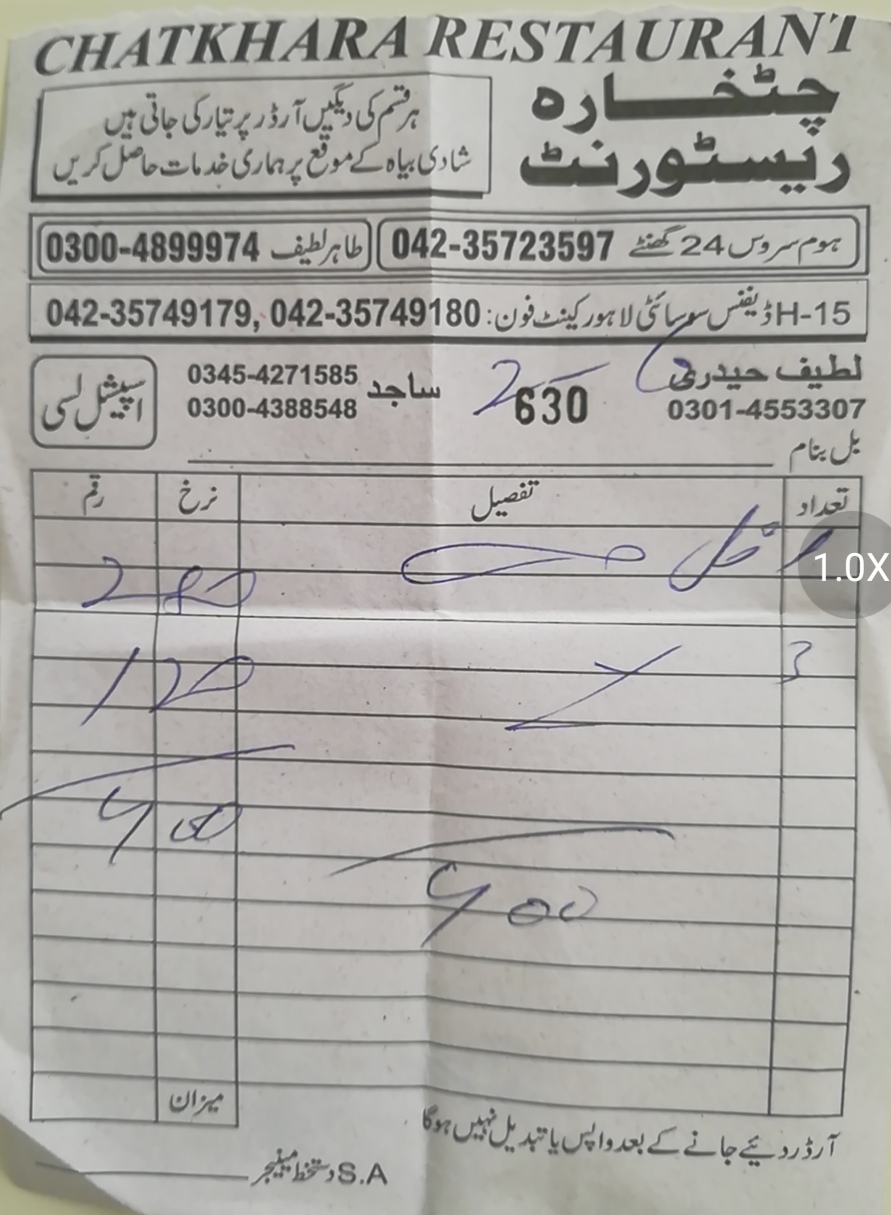 CHATKHARA RESTAURANT
چٹخارہ
ریسٹورنٹ
ہر قسم کی دیگیں آرڈر پر تیار کی جاتی ہیں
شادی بیاہ کے موقع پر ہماری خدمات حاصل کریں
ہوم سروس 24 گھنٹے 042-35723597
طاہر لطیف 0300-4899974
H-15 ڈیفنس سوسائٹی لاہور کینٹ فون: 042-35749179, 042-35749180
لطیف حیدری
0301-4553307
630
ساجد 0345-4271585
0300-4388548
اسپیشل لسی
بل بنام
تعداد تفصیل نرخ رقم
280
3 120
400
400
میزان
آرڈر دیئے جانے کے بعد واپس یا تبدیل نہیں ہوگا
S.A دستخط مینیجر
1.0X